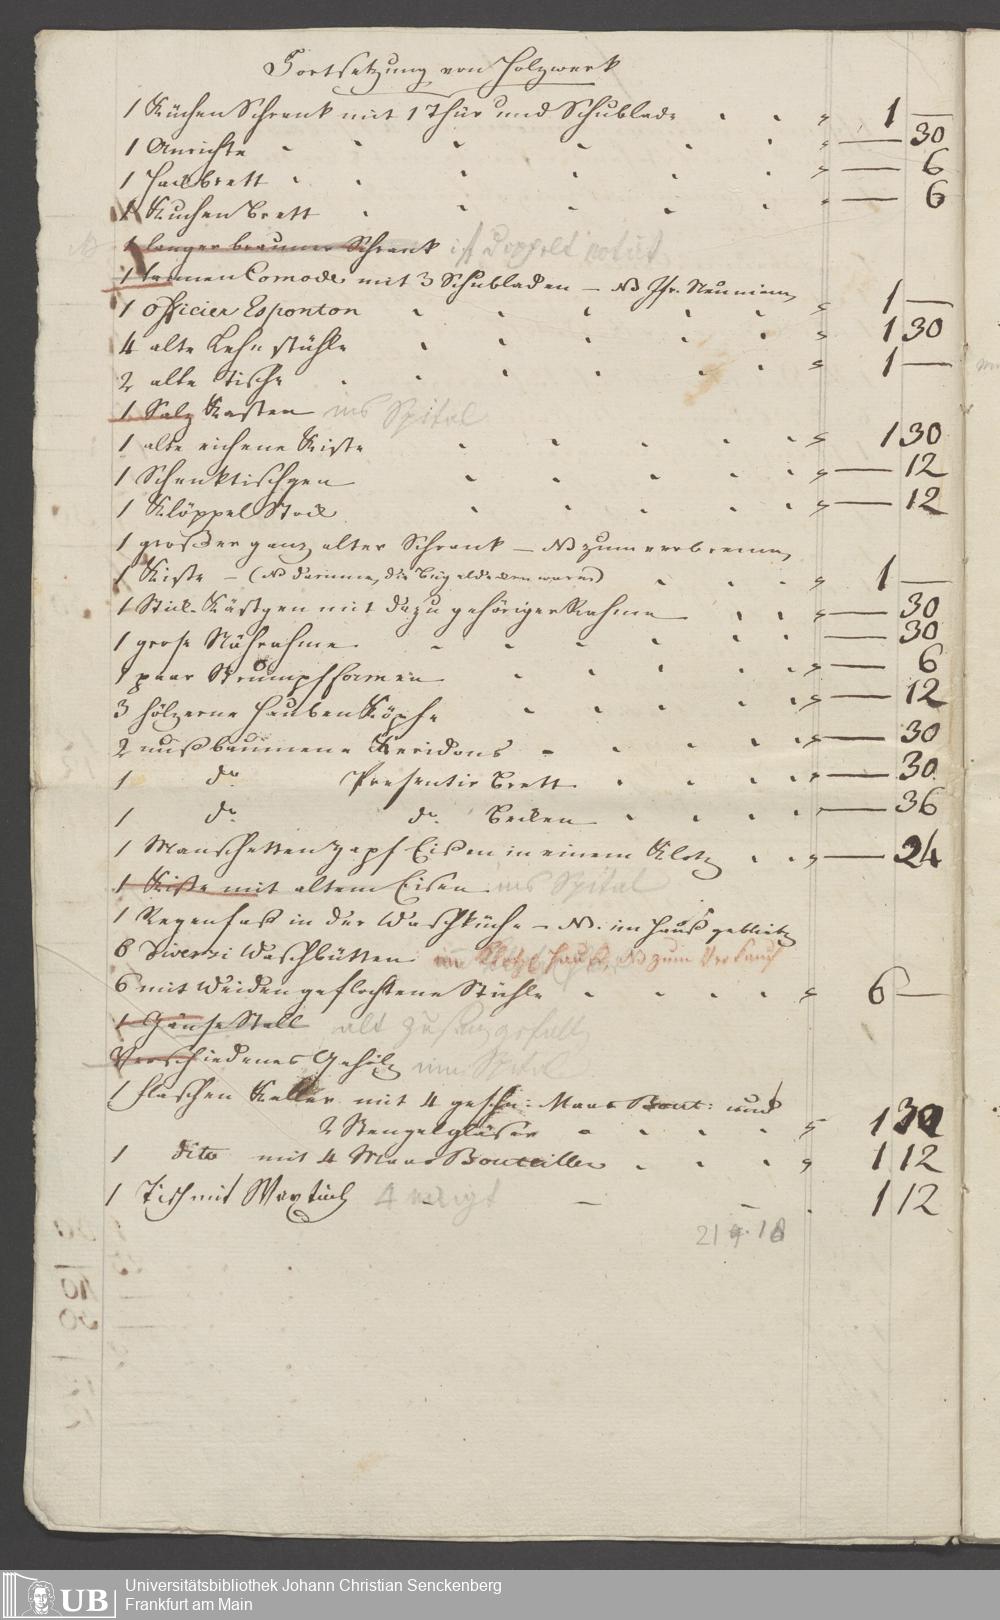 Fortsetzung von Holzwerk
1 Küchen Schrank mit 1 Thür und Schublade „ 1 —
1 Anrichte „ — 30
1 Hackbrett „ — 6
1 Kuchen Brett „ — 6
1 langer brauner Schrank ist doppelt notirt
1 tannen Comode mit 3 Schubladen — NB Hr. Neumann
1 officier Esponton „ 1 —
4 alte Lehnstühle „ 1 30
2 alte Tische „ 1 —
1 Salz Kasten ins Spital
1 alte eichene Kiste „ 1 30
1 Schenktischgen „ — 12
1 Klöppel Stock „ — 12
1 großer ganz alter Schrank — NB zum verbrennen
1 Kiste — (NB darinne, die waren) „ 1 —
1 Stick-Kästgen mit dazu gehöriger Rahme „ — 30
1 grose Nährahme — 30
1 paar Strumpfformen „ — 6
3 hölzerne Hauben Köpfe „ — 12
2 nußbaumene Keridons „ — 30
1 do. Presentir Brett „ — 30
1 do. do. Becken „ — 36
1 Manschetten Zapf Eisen in einem Klotz „ — 24
1 Kiste mit altem Eisen ins Spital
1 Regenfaß in der Waschküche — NB. im Hauß geblieb.
8 Diversi Waschbütten im Hauß, NB zum Verkauf
6 mit Weiden geflochtene Stühle „ 6 —
1 Gänse Stall alt
Verschiedenes Gehölz im Spital
1 Flaschen Keller mit 4 geschn: Maas Bout: und
2 Stengelgläser „ 1 30
1 dito mit 4 Maas Bouteillen „ 1 12
1 Tisch mit Wachstuch 1 12
21 18
Universitätsbibliothek Johann Christian Senckenberg
Frankfurt am Main
UB